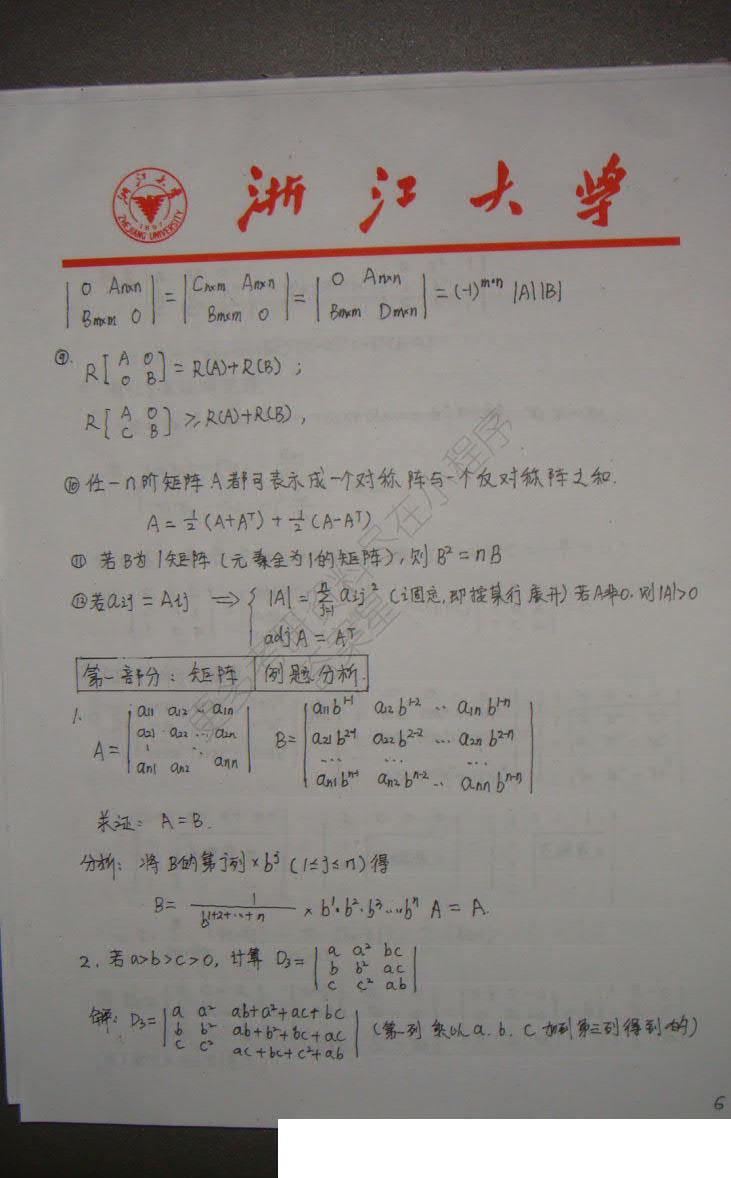 浙江大学
浙江大学
ZHEJIANG UNIVERSITY
1897
| 0 An×n ; Bm×m 0 | = | Cn×m An×n ; Bm×m 0 | = | 0 An×n ; Bm×m Dm×n | = (-1)^{m·n} |A||B|
⑨. R[ A 0 ; 0 B ] = R(A)+R(B) ;
R[ A 0 ; C B ] ≥ R(A)+R(B) ,
⑩ 任一n阶矩阵A都可表示成一个对称阵与一个反对称阵之和.
A = ½(A+A^T) + ½(A-A^T)
⑪ 若B为1矩阵(元素全为1的矩阵), 则 B² = nB
⑫ 若aij = Aij ⟹ { |A| = Σ_{j=1}^{n} aij² (i固定,即按某行展开) 若A非0. 则|A|>0
adj A = A^T
第一部分: 矩阵 例题分析.
1. A = | a11 a12 ... a1n ; a21 a22 ... a2n ; ⋮ ⋱ ; an1 an2 ann | B = | a11b^{1-1} a12b^{1-2} ... a1nb^{1-n} ; a21b^{2-1} a22b^{2-2} ... a2nb^{2-n} ; ... ... ... ; an1b^{n-1} an2b^{n-2} ... annb^{n-n} |
求证: A = B.
分析: 将B的第j列×b^j (1≤j≤n)得
B = 1/b^{1+2+...+n} × b^1·b^2·b^3...b^n A = A.
2. 若a>b>c>0, 计算 D3 = | a a² bc ; b b² ac ; c c² ab |
解: D3 = | a a² ab+a²+ac+bc ; b b² ab+b²+bc+ac ; c c² ac+bc+c²+ab | (第一列乘以a.b.c加到第三列得到的)
更多考研资料尽在小程序
答案星
6